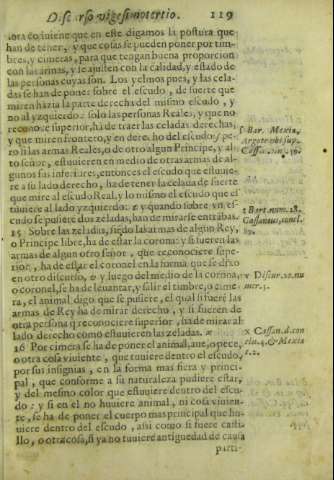 Discurso vigesimotertio. 119
,ora cōviene que en este digamos la postura que
han de tener, y que cosas se pueden poner por tim-
bres, y cimeras, para que tengan buena proporcion
con las armas, y se ajusten con la calidad, y estado de
las personas cuyas son. Los yelmos pues, y las cela-
das se han de poner sobre el escudo, de suerte que
miren hàzia la parte derecha del mismo escudo, y
no al yzquierdo: solo las personas Reales, y que no
reconocē superior, ha de traer las celadas derechas,
y que miren frontero, y en derecho del escudo, pe-
ro si las armas Reales, o de otro algun Principe, y al-
to señor, estuvieren en medio de otras armas de al-
gunos sus inferiores, entonces el escudo que estuuie-
re a su lado derecho, ha de tener la celada de suerte
que mire al escudo Real, y lo mismo el escudo que es
tuuiere al lado yzquierdo: z y quando sobre vn es-
cudo se pusierē dos zeladas, han de mirarse entrābas.
15 Sobre las zeladas, siēdo las armas de algun Rey,
o Principe libre, ha de estar la corona: y si fueren las
armas de algun otro señor, que reconociesse supe-
rior, ha de estar el coronel en la forma que se dixo
en otro discurso, u y luego del medio de la corona,
o coronel, se ha de leuantar, y salir el timbre, o cime-
ra, el animal, digo que se pusiere, el qual si fuere las
armas de Rey ha de mirar derecho, y si fueren de
otra persona q̄ reconociere superior, ha de mirar al
lado derecho como estuuieren las zeladas. x
16 Por cimera se ha de poner el animal, aue, o pece,
o otra cosa viuiente, que tuuiere dentro el escudo,
por sus insignias, en la forma mas fiera y princi-
pal, que conforme a su naturaleza pudiere estar,
y del mesmo color que estuuiere dentro del escu-
do: y si en el no huuiere animal, ni cosa viuien-
te, se ha de poner el cuerpo mas principal que hu-
uiere dentro del escudo, assi como si fuere casti-
llo, o otra cosa, si ya no tuuiere antiguedad de causa
parti-
Bar. Mexia,
Argote vbi sup.
Cassan.
z Bart. num. 18.
Cassaneus, concl.
u Discur. 20. nu
mer. 5.
x Cassan. d. con
& Mexia